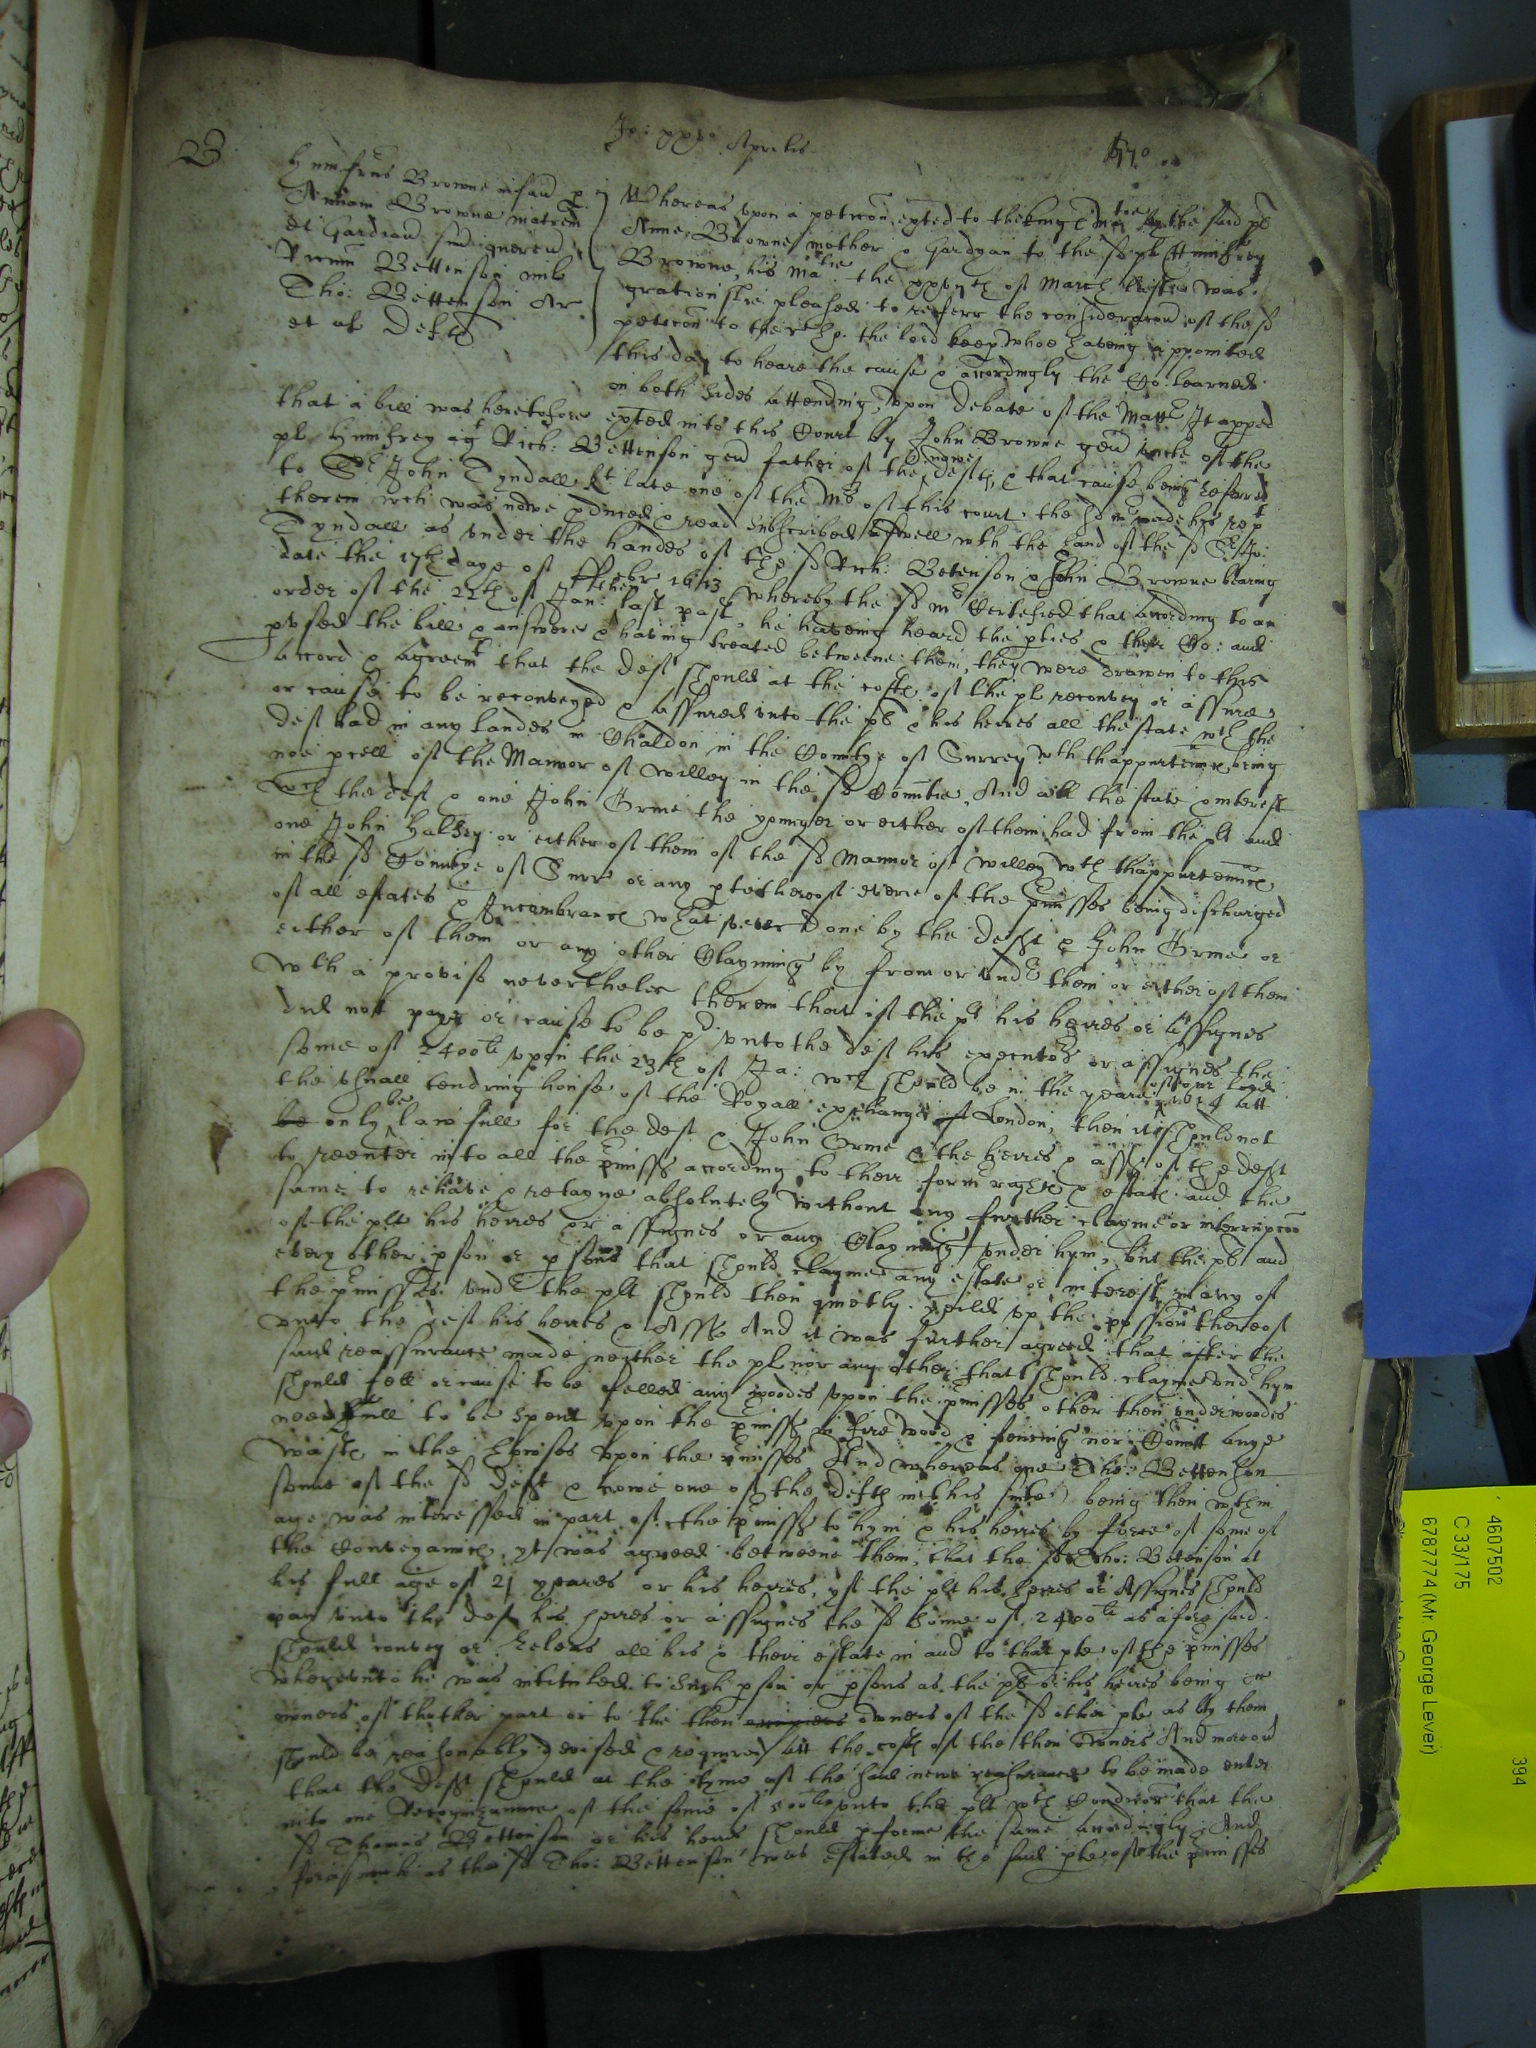 B
Jo: xxo Aprilis
570
Humfrus Browne infans p
Annam Browne matrem
et Gardian suu quereus
Ricum Bettenson mil
Tho: Bettenson Ar
et al Defts
Whereas upon a peticon exted to the kinge ma by the said
Anne Browne mother & Gardyan to the sd pl Humfrey
Browne, his matie the of March last was
gratiouslie pleased to referr the consideracon of the sd
peticon to the the lord keep whoe haveing appointed
this day to heare the cause & accordingly the Co: learned
on both sides attending, upon debate of the Matter It apped
that a bill was heretofore exted into this Court by John Browne gen uncle of the
pl Humfrey agt Rich: Bettenson gen father of the nowe deft, & that cause being referred
to Sr John Tyndall kt late one of the Mrs of this court, the sd mr made his rept
therein wch was nowe pduced & read subscribed aswell wth the hand of the sd Sr Jo:
Tyndall as under the handes of the sd Rich: Betenson & John Browne bearing
date the 17th daye of ffebr 1613 whereby the sd mr Certefied that according to an
order of the 22th of Jan: last past, he haveing heard the pties & their Co: and
pused the bill & answere & having treated betweene them, they were drawen to this
accord & agreemt that the deft should at the costs of the pl reconvey or assure,
or cause to be reconveyed & assured unto the pl & his heires all the state wch the
deft had in any landes in Chaldon in the Countye of Surrey wth thappurtennces being
noe pcell of the Mannor of Willey in the sd Countie, And all the state & interest
Wch the deft & one John Orme the younger or either of them had from the pl and
one John Halsey or either of them of the sd Mannor of Willey wth thappurtennces
in the sd Countye of Surr or any pte thereof everie of the pmisses being discharged
of all estates & Incombrances whatsoever done by the deft & John Orme or
either of them or any other Clayming by from or under them or either of them
Wth a proviso neverthelesse therein that if the pl his heires or Assignes
did not paye or cause to be pd unto the deft his executors or assignes the
some of 2400li upon the 23th of Ja: wch should be in the yeare of our lord att
the usuall tendring house of the Royall exchange of London, then it should not
be only be lawfull for the deft & John Orme & the heires & asss of the deft
to reenter into all the pmisses according to their former rights & estate and the
same to rehave & retayne absolutely without any further clayme or interrupcon
of the plt his heires or assignes or any Clayming under hym, but the pl and
every other pson or psons that should clayme any estate or interest in any of
the pmisses under the plt should then quietly yeild up the possion thereof
unto the deft his heires & Asss And it was further agreed that after the
said reassurance made neither the pl nor any other that should clayme under hym
should fell or cause to be felled any woodes upon the pmisses other then underwoodes
needfull to be spent upon the pmisses in fire wood & fencing nor Comitt anye
Waste in the howses upon the pmisses And whereas one Tho: Bettenson
sonne of the sd deft & nowe one of the defts in this suite being then within
age was interessed in part of the pmisses to hym & his heires by force of some of
the Conveyances, yt was agreed betweene them, that the sd Tho: Betenson at
his full age of 21 yeares or his heires, yf the plt his heires or Assignes should
pay unto the deft his heires or assignes the sd Some of 2400li as aforesaid
should convey or Releas all his & their estate in and to that pte of the pmisses
whereunto he was intituled to such pson or psons as the pl or his heires being
owners of thother part or to the then owners of the sd other pte as by them
should be reasonably devised & required att the costs of the then owners And moreover
that the deft should at the tyme of the said newe reassurance to be made enter
into one Recognizannce of the some of 500li unto the plt wth Condicon that the
sd Thomas Bettenson or his heires should pforme the same accordingly. And
forasmuch as the sd Tho: Bettenson was estated in the said pte of the pmisses
4607502
C 33/175
6787774 (Mr. George Lever)
394